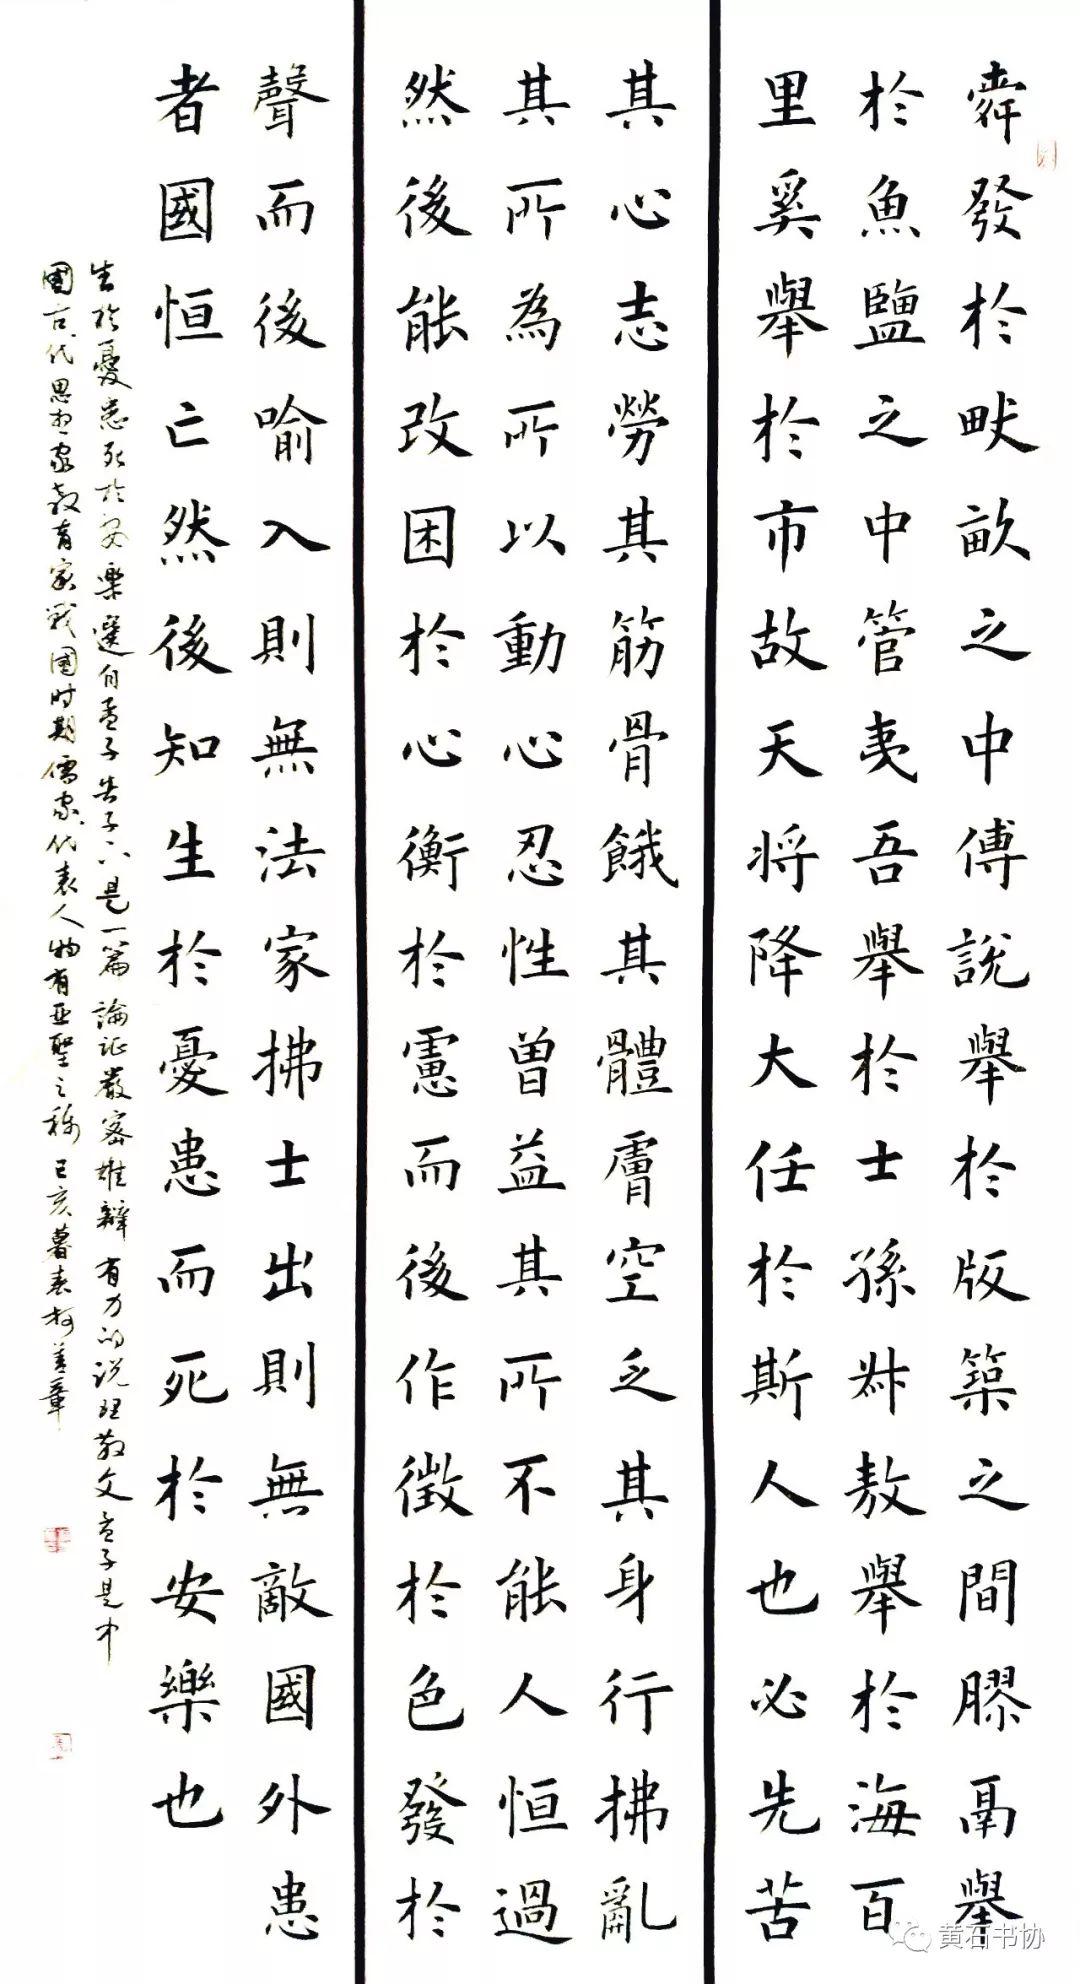 舜發於畎畝之中傅說舉於版築之間膠鬲舉
於魚鹽之中管夷吾舉於士孫叔敖舉於海百
里奚舉於市故天将降大任於斯人也必先苦
其心志勞其筋骨餓其體膚空乏其身行拂亂
其所為所以動心忍性曾益其所不能人恒過
然後能改困於心衡於慮而後作徵於色發於
聲而後喻入則無法家拂士出則無敵國外患
者國恒亡然後知生於憂患而死於安樂也
生於憂患死於安樂選自孟子告子下是一篇論证嚴密雄辯有力的说理散文孟子是中
國古代思想家教育家戰國时期儒家代表人物有亚聖之称己亥暮春柯善章
黄石书协